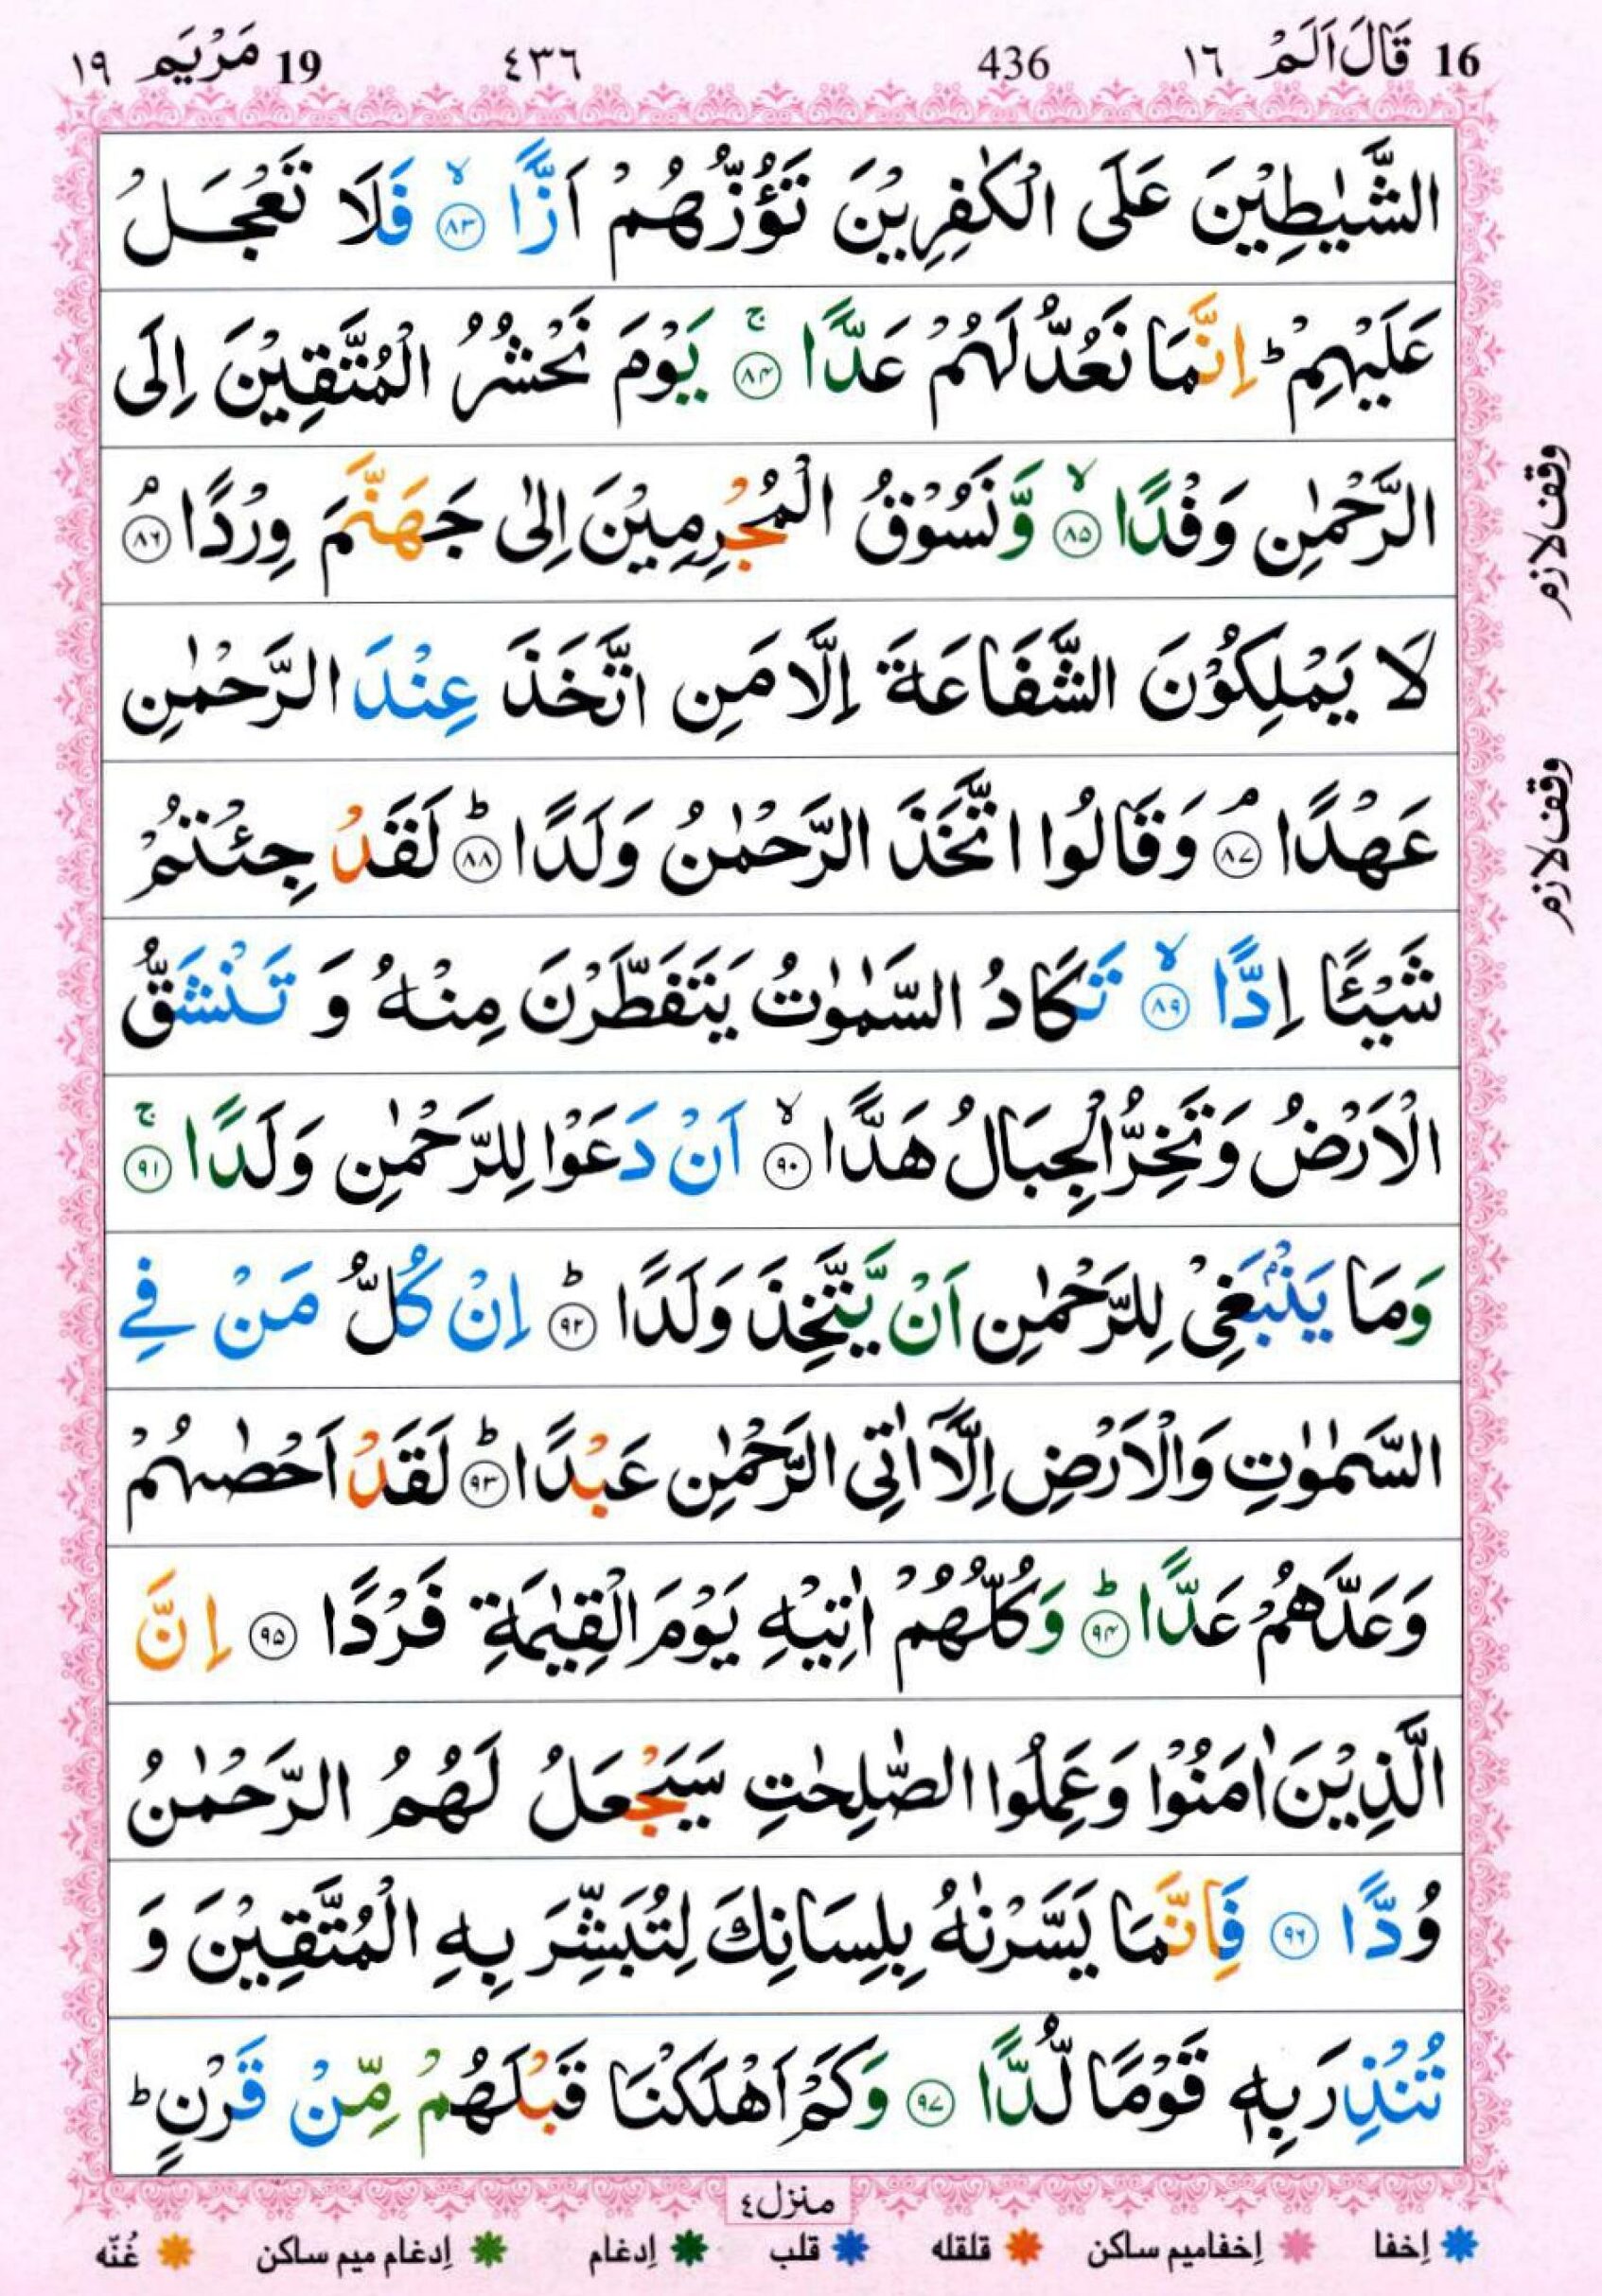 16 قَالَ اَلَمْ ١٦ 436 ٤٣٦ 19 مَرْيَم ١٩
الشَّيٰطِيْنَ عَلَى الْكٰفِرِيْنَ تَؤُزُّهُمْ اَزًّا ۙ‏﴿۸۳﴾ فَلَا تَعْجَلْ
عَلَيْهِمْ ؕ اِنَّمَا نَعُدُّ لَهُمْ عَدًّا ۚ‏﴿۸۴﴾ يَوْمَ نَحْشُرُ الْمُتَّقِيْنَ اِلَى
الرَّحْمٰنِ وَفْدًا ۙ‏﴿۸۵﴾ وَّنَسُوْقُ الْمُجْرِمِيْنَ اِلٰى جَهَنَّمَ وِرْدًا ۘ‏﴿۸۶﴾
وقف لازم
لَا يَمْلِكُوْنَ الشَّفَاعَةَ اِلَّا مَنِ اتَّخَذَ عِنْدَ الرَّحْمٰنِ
عَهْدًا ۘ‏﴿۸۷﴾ وَقَالُوا اتَّخَذَ الرَّحْمٰنُ وَلَدًا ؕ‏﴿۸۸﴾ لَقَدْ جِئْتُمْ
وقف لازم
شَيْئًا اِدًّا ۙ‏﴿۸۹﴾ تَكَادُ السَّمٰوٰتُ يَتَفَطَّرْنَ مِنْهُ وَ تَنْشَقُّ
الْاَرْضُ وَتَخِرُّ الْجِبَالُ هَدًّا ۙ‏﴿۹۰﴾ اَنْ دَعَوْا لِلرَّحْمٰنِ وَلَدًا ۚ‏﴿۹۱﴾
وَمَا يَنْۢبَغِىْ لِلرَّحْمٰنِ اَنْ يَّتَّخِذَ وَلَدًا ؕ‏﴿۹۲﴾ اِنْ كُلُّ مَنْ فِى
السَّمٰوٰتِ وَالْاَرْضِ اِلَّاۤ اٰتِى الرَّحْمٰنِ عَبْدًا ؕ‏﴿۹۳﴾ لَقَدْ اَحْصٰٮهُمْ
وَعَدَّهُمْ عَدًّا ؕ‏﴿۹۴﴾ وَكُلُّهُمْ اٰتِيْهِ يَوْمَ الْقِيٰمَةِ فَرْدًا‏﴿۹۵﴾ اِنَّ
الَّذِيْنَ اٰمَنُوْا وَعَمِلُوا الصّٰلِحٰتِ سَيَجْعَلُ لَهُمُ الرَّحْمٰنُ
وُدًّا‏﴿۹۶﴾ فَاِنَّمَا يَسَّرْنٰهُ بِلِسَانِكَ لِتُبَشِّرَ بِهِ الْمُتَّقِيْنَ وَ
تُنْذِرَ بِهٖ قَوْمًا لُّدًّا‏﴿۹۷﴾ وَكَمْ اَهْلَكْنَا قَبْلَهُمْ مِّنْ قَرْنٍ ؕ
منزل٤
اِخفا اِخفامیم ساکن قلقله قلب اِدغام اِدغام میم ساکن غُنّه